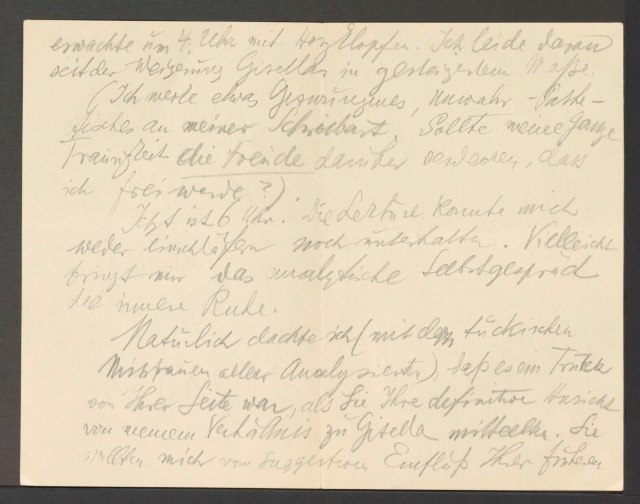 erwachte um 4. Uhr mit Herzklopfen. Ich leide daran
seit der Weigerung Gisellas in gesteigertem Maße.
(Ich merke etwas Gezwungenes, Unwahr-Pathe-
tisches an meiner Schreibart. Sollte meine ganze
Traurigkeit die Freude darüber verdecken, dass
ich frei werde?)
Jetzt ist 6 Uhr. Die Lektüre konnte mich
weder einschläfern noch unterhalten. Vielleicht
bringt mir das analytische Selbstgespräch
die innere Ruhe.
Natürlich dachte ich (mit dem tückischen
Mistrauen aller Analysierten) daß es ein
von Ihrer Seite war, als Sie Ihre definitive Ansicht
von meinem Verhältnis zu Gisella mitteilten. Sie
wollten mich vom Suggestiven Einfluß Ihrer früheren